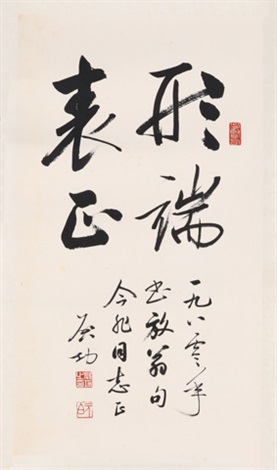 形端
表正
一九八零年
书放翁句
今非同志正
启功